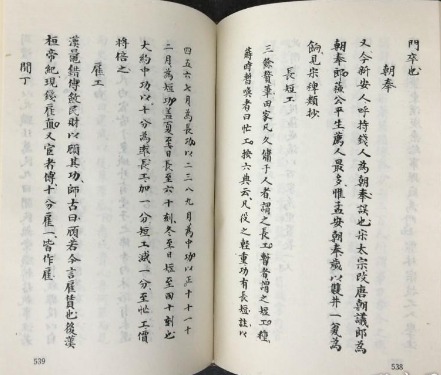 門卒也
朝奉
又今新安人呼持錢人為朝奉誤也宋太宗改唐朝議郎為
朝奉郎蘇公平生薦人最多惟孟安朝奉歲以雙井一瓮為
餉見宋稗類抄
長短工
三餘贅筆田家凡久傭于人者謂之長工暫者謂之短工種
蒔時暫喚者曰忙工按六典云凡役之輕重功有長短註以
538
四五六七月為長功以二三八九月為中功以正十十一十
二月為短功蓋夏至日長至六十刻冬至日短至四十刻也
大約中功以十分為率長工加一分短工減一分至忙工價
將倍之
雇工
漢晁錯傳斂民財以顧其功師古曰顧若今言雇賃也後漢
桓帝紀現錢雇直又宦者傳十分雇一皆作雇
閒丁
539